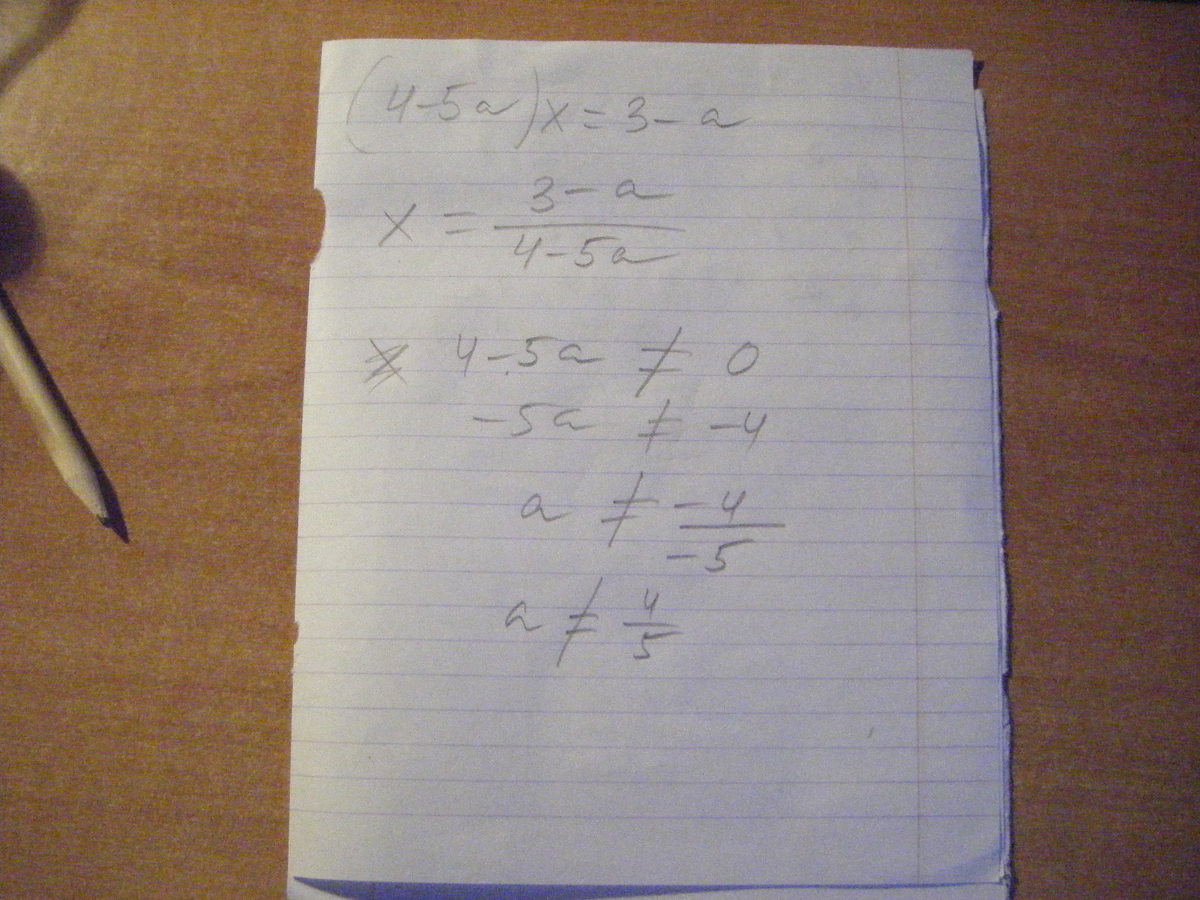 (4-5a)x=3-a
x = (3-a)/(4-5a)
4-5a ≠ 0
-5a ≠ -4
a ≠ -4/-5
a ≠ 4/5